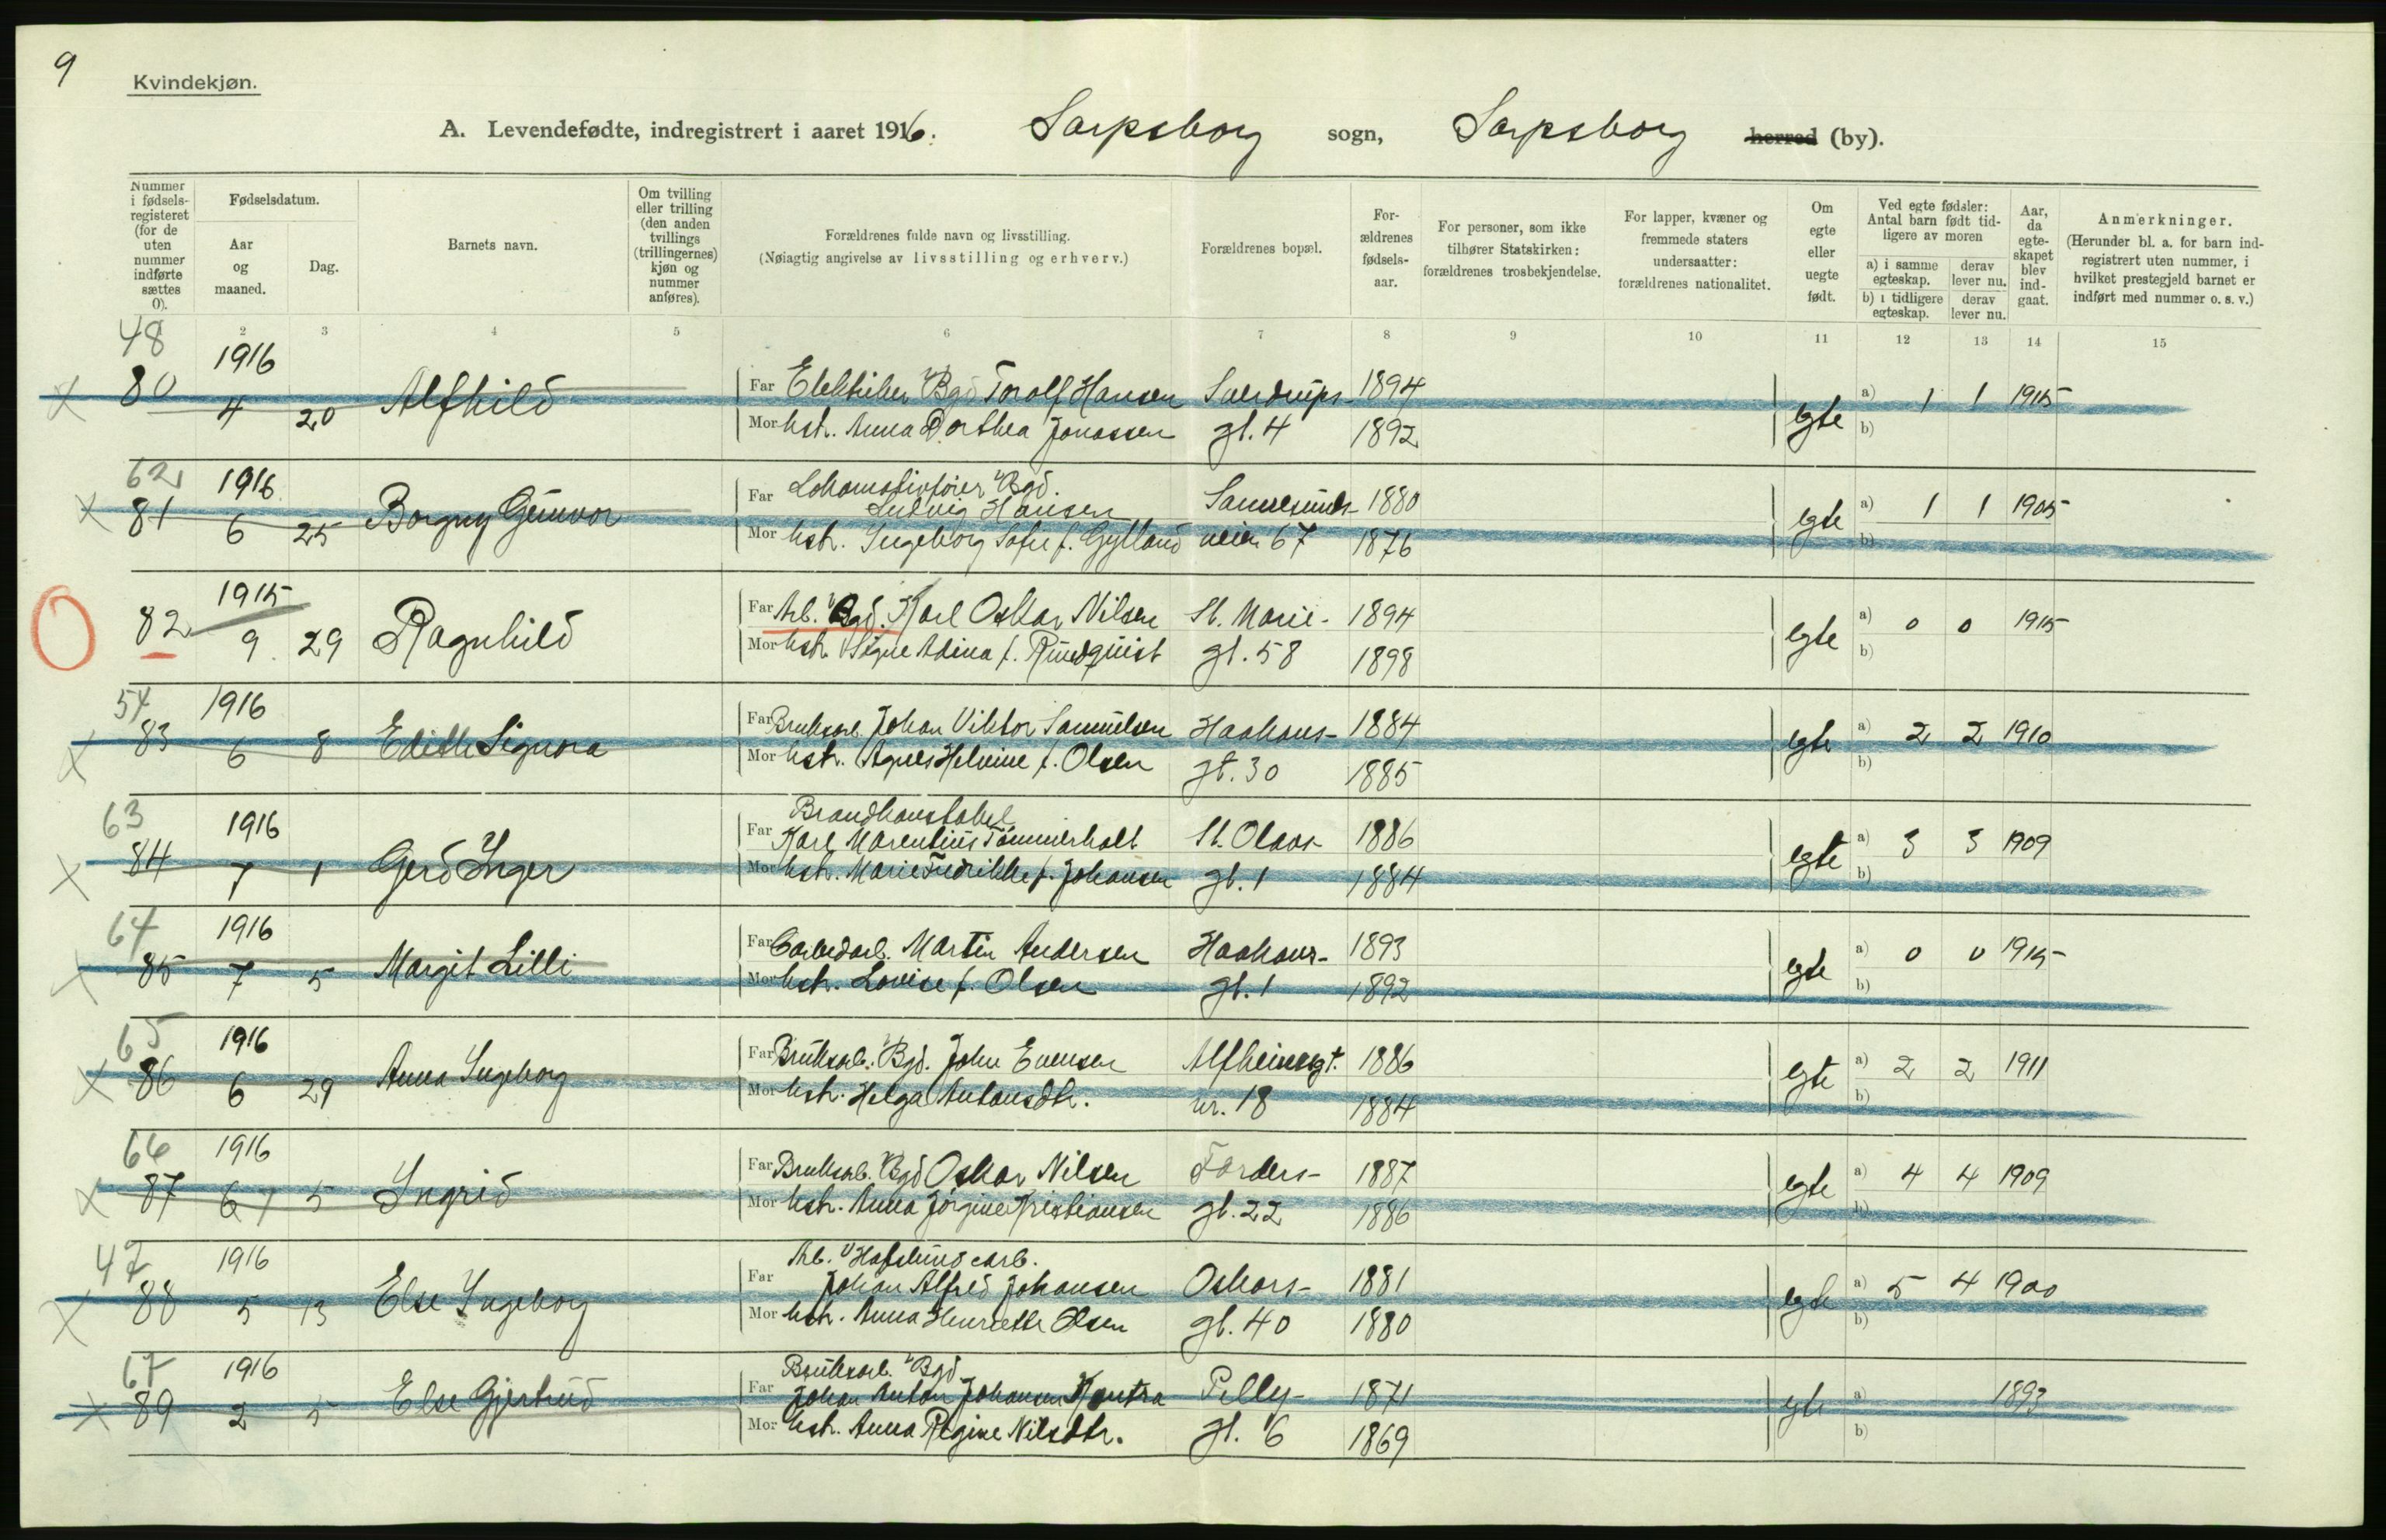 9
Kvindekjøn.
A. Levendefødte, indregistrert i aaret 1916. Sarpsborg sogn, Sarpsborg herred (by).
Nummer i fødsels-registeret (for de uten nummer indførte sættes 0).
Fødselsdatum.
Aar og maaned.
Dag.
Barnets navn.
Om tvilling eller trilling (den anden tvillings (trillingernes) kjøn og nummer anføres).
Forældrenes fulde navn og livsstilling.
(Nøiagtig angivelse av livsstilling og erhverv.)
Forældrenes bopæl.
For-ældrenes fødsels-aar.
For personer, som ikke tilhører Statskirken: forældrenes trosbekjendelse.
For lapper, kvæner og fremmede staters undersaatter: forældrenes nationalitet.
Om egte eller uegte født.
Ved egte fødsler: Antal barn født tid-ligere av moren
a) i samme egteskap. derav lever nu.
b) i tidligere egteskap. derav lever nu.
Aar, da egte-skapet blev ind-gaat.
Anmerkninger.
(Herunder bl. a. for barn ind-registrert uten nummer, i hvilket prestegjeld barnet er indført med nummer o. s. v.)
2 3 4 5 6 7 8 9 10 11 12 13 14 15
48
1916
x 80 4 20 Alfhild Far Elektriker Bgd Torolf Hansen Sverdrups- 1894 egte a) 1 1 1915
Mor Hstr. Anna Dorthea Jonassen gt. 4 1892 b)
62
1916
x 81 6 25 Borgny Gunvor Far Lokomotivfører Bgd.
Ludvig Hansen Sannesunds- 1880 egte a) 1 1 1905
Mor Hstr. Ingeborg Sofie f. Gylland veien 67 1876 b)
1915
O 82 9 29 Ragnhild Far Arb. Bgd. Karl Oskar Nilsen St. Marie- 1894 egte a) 0 0 1915
Mor Hstr. Signe Adina f. Rundquist gt. 58 1898 b)
54
1916
x 83 6 8 Edith Signora Far Bruksarb. Johan Viktor Samuelsen Haakons- 1884 egte a) 2 2 1910
Mor Hstr. Agnes Helvine f. Olsen gt. 30 1885 b)
63
1916
Brandkonstabel
x 84 7 1 Gerd Inger Far Karl Marentius Tømmerholt St. Olavs- 1886 egte a) 3 3 1909
Mor Hstr. Marie Fredrikke f. Johansen gt. 1 1884 b)
64
1916
x 85 7 5 Margit Lilli Far Martin Andersen Haakons- 1893 egte a) 0 0 1915
Mor Hstr. Lovise f. Olsen gt. 1 1892 b)
65
1916
x 86 6 29 Anna Ingeborg Far Bruksarb. Bgd. John Evensen Alfheimsgt. 1886 egte a) 2 2 1911
Mor Hstr. Helga Antonsdtr. nr. 18 1884 b)
66
1916
x 87 6 7 5 Ingrid Far Bruksarb. Bgd Oskar Nilsen Torders- 1887 egte a) 4 4 1909
Mor Hstr. Anna Jørgine Kristiansen gt. 22 1886 b)
47
1916
Arb. v/ Hafslund carb.
x 88 5 13 Else Ingeborg Far Johan Alfred Johansen Oskars- 1881 egte a) 5 4 1900
Mor Hstr. Anna Henriette Olsen gt. 40 1880 b)
67
1916
Bruksarb. Bgd.
x 89 2 5 Else Gjertrud Far Johan Anton Johansen Kantra Pelly- 1871 egte a) 1893
Mor Hstr. Anna Regine Nilsdtr. gt. 6 1869 b)